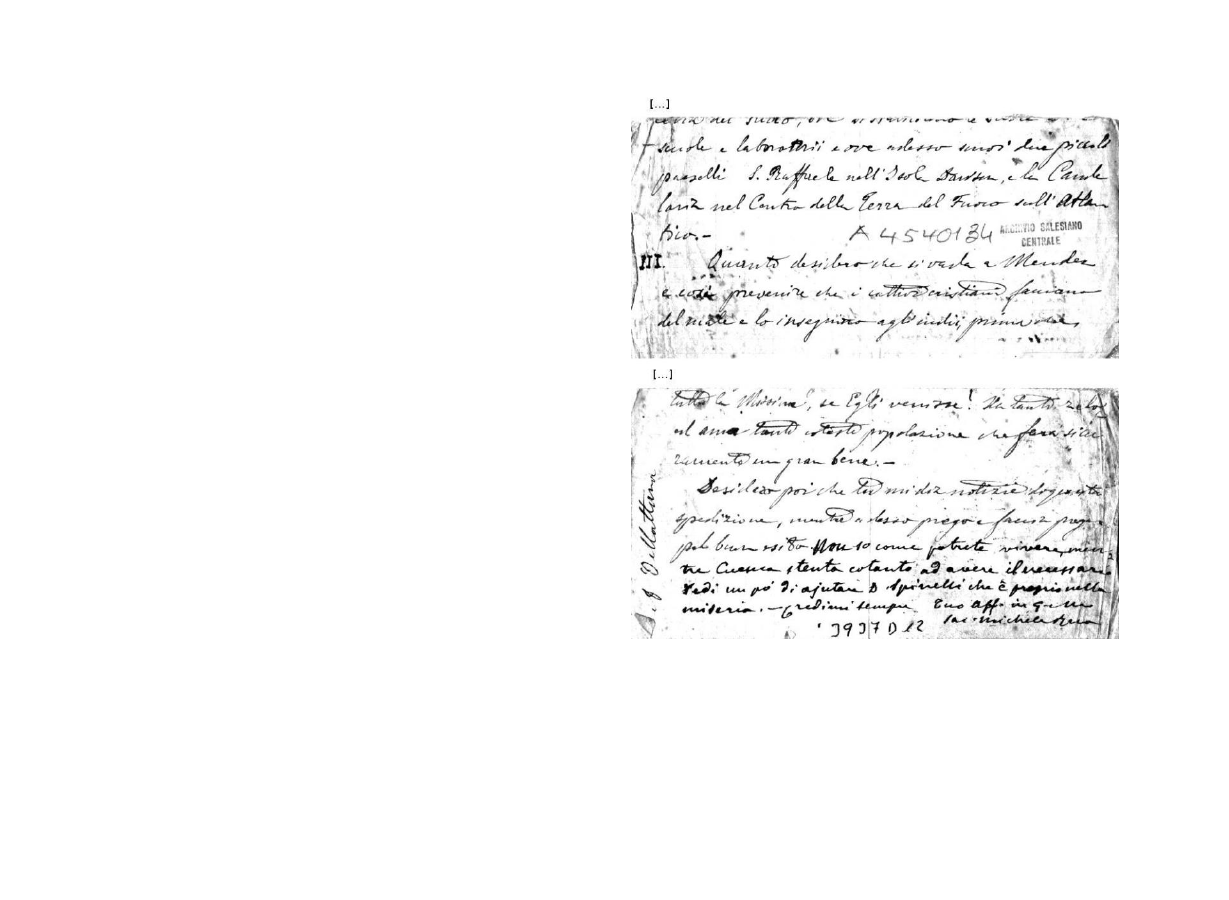 [...]
Terra del Fuoco, ove
scuole e laboratorii e ove adesso sonvi due piccoli
paeselli S. Raffaele nell'Isola Dawson, e la Cande
laria nel Centro della Terra del Fuoco sull'Atlan
tico.–
A 4540134 ARCHIVIO SALESIANO
CENTRALE
III. Quanto desidero che si vada a Mendez
e così prevenire che i cattivi cristiani facciano
del male e lo insegnino agl'indii, prima
[...]
tutta la Missione, se Egli venisse! Ha tanto zelo
ed ama tanto cotesta popolazione che farà sicu
ramente un gran bene.–
Desidero poi che tu mi dia notizie di questa
spedizione, mentre adesso prego e faccio pregare
pel buon esito Non so come potrete vivere, men
tre Cuenca stenta cotanto ad avere il necessario
Vedi un po' di ajutare D. Spinelli che è proprio nella
miseria.– Credimi sempre Tuo aff. in G. e M.
Sac. Michele Rua
3937 D 12
D. G. Mattana